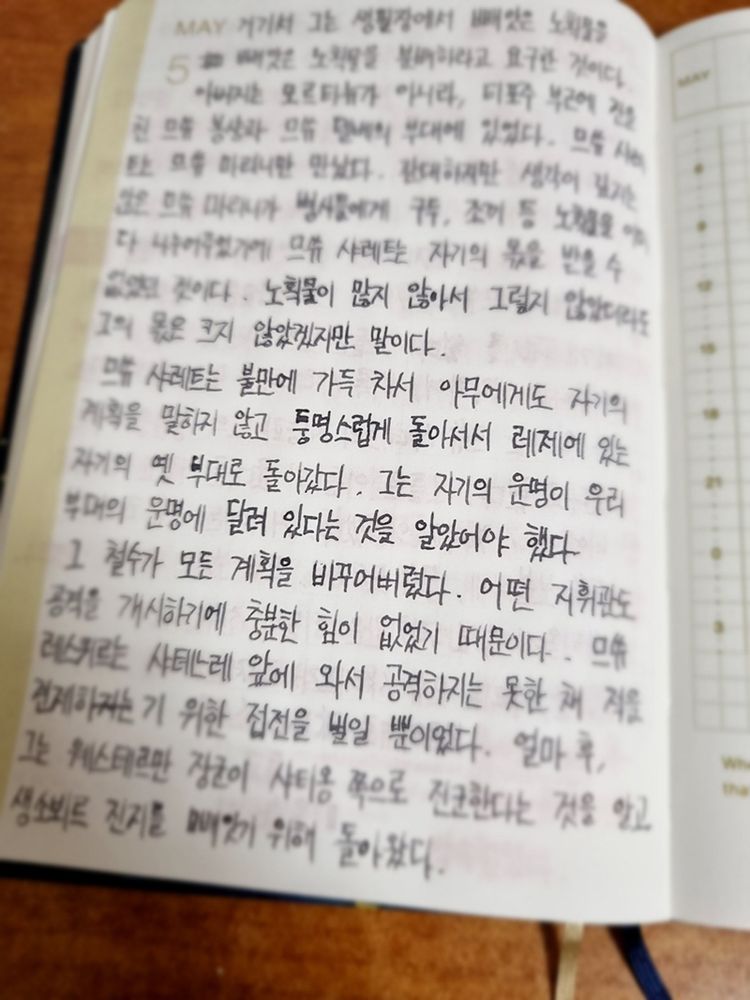 MAY 거기서 그는 생퓔장에서 빼앗은 노획물을
5 빼앗은 노획물을 분배하라고 요구한 것이다.
아버지는 모르타뉴가 아니라, 티포주 부근에 진을
친 므슈 봉샹과 므슈 델베의 부대에 있었다. 므슈 샤레
트는 므슈 마리니만 만났다. 관대하지만 생각이 깊지는
않은 므슈 마리니가 병사들에게 구두, 조끼 등 노획물을 이미
다 나누어주었기에 므슈 샤레트는 자기의 몫을 받을 수
없었던 것이다. 노획물이 많지 않아서 그렇지 않았더라도
그의 몫은 크지 않았겠지만 말이다.
므슈 샤레트는 불만에 가득 차서 아무에게도 자기의
계획을 말하지 않고 퉁명스럽게 돌아서서 레제에 있는
자기의 옛 부대로 돌아갔다. 그는 자기의 운명이 우리
부대의 운명에 달려 있다는 것을 알았어야 했다
그 철수가 모든 계획을 바꾸어버렸다. 어떤 지휘관도
공격을 개시하기에 충분한 힘이 없었기 때문이다. 므슈
레스퀴르는 샤테느레 앞에 와서 공격하지는 못한 채 적을
견제하기 위한 접전을 벌일 뿐이었다. 얼마 후,
그는 웨스테르만 장군이 샤티옹 쪽으로 진군한다는 것을 알고
생소뵈르 진지를 빼앗기 위해 돌아왔다.
MAY
6
9
12
15
18
21
0
3